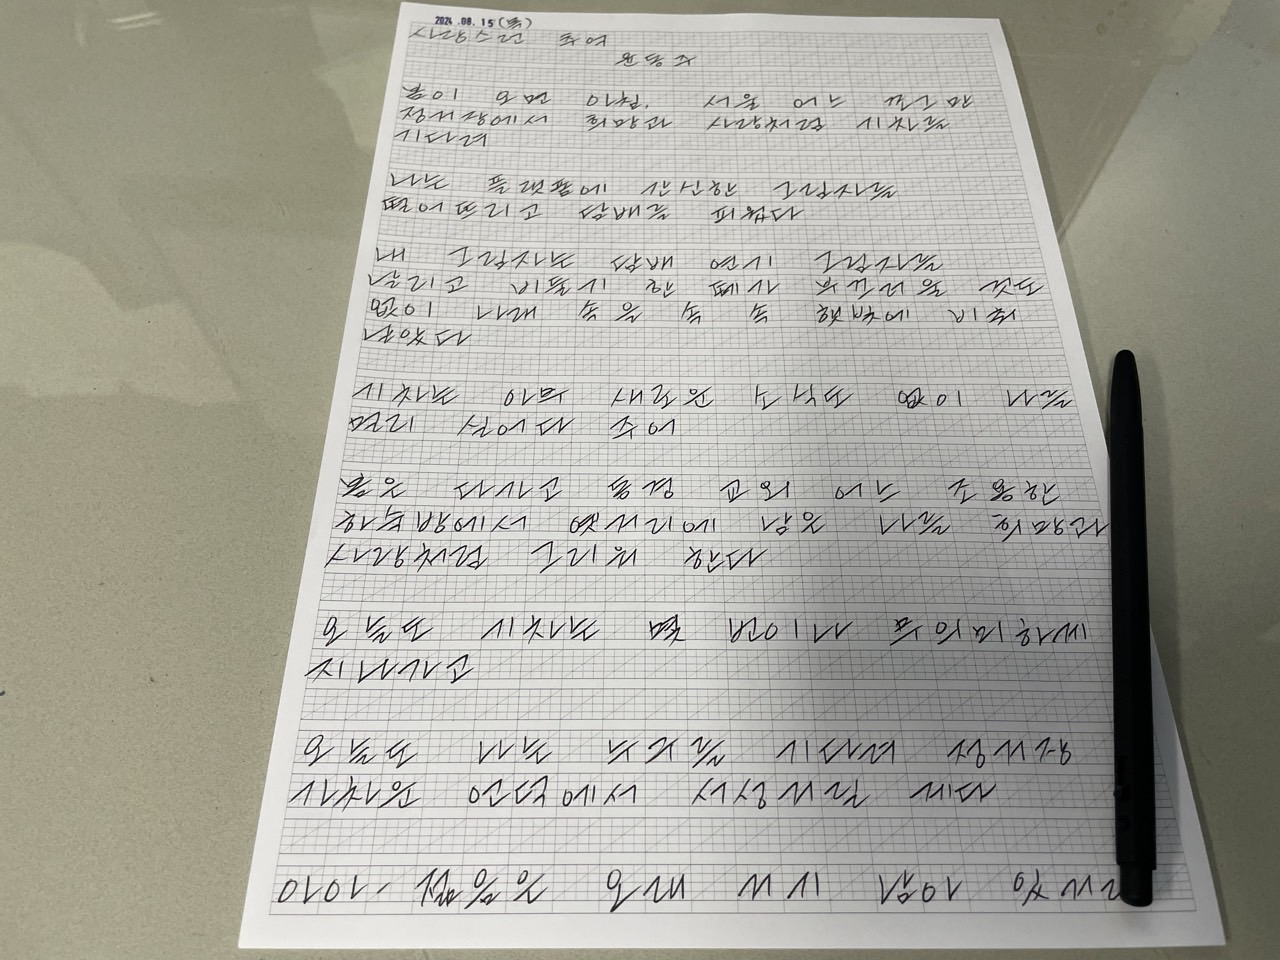 2024.08.15(목)
사랑스런 추억
윤동주
봄이 오던 아침, 서울 어느 쪼그만
정거장에서 희망과 사랑처럼 기차를
기다려
나는 플랫폼에 간신한 그림자를
떨어뜨리고 담배를 피웠다
내 그림자는 담배 연기 그림자를
날리고 비둘기 한 떼가 부끄러울 것도
없이 나래 속을 속 속 햇빛에 비춰
날았다
기차는 아무 새로운 소식도 없이 나를
멀리 실어다 주어
봄은 다가고 동경 교외 어느 조용한
하숙방에서 옛거리에 남은 나를 희망과
사랑처럼 그리워 한다
오늘도 기차는 몇 번이나 무의미하게
지나가고
오늘도 나는 누구를 기다려 정거장
가차운 언덕에서 서성거릴 게다
아아- 젊음은 오래 거기 남아 있거라